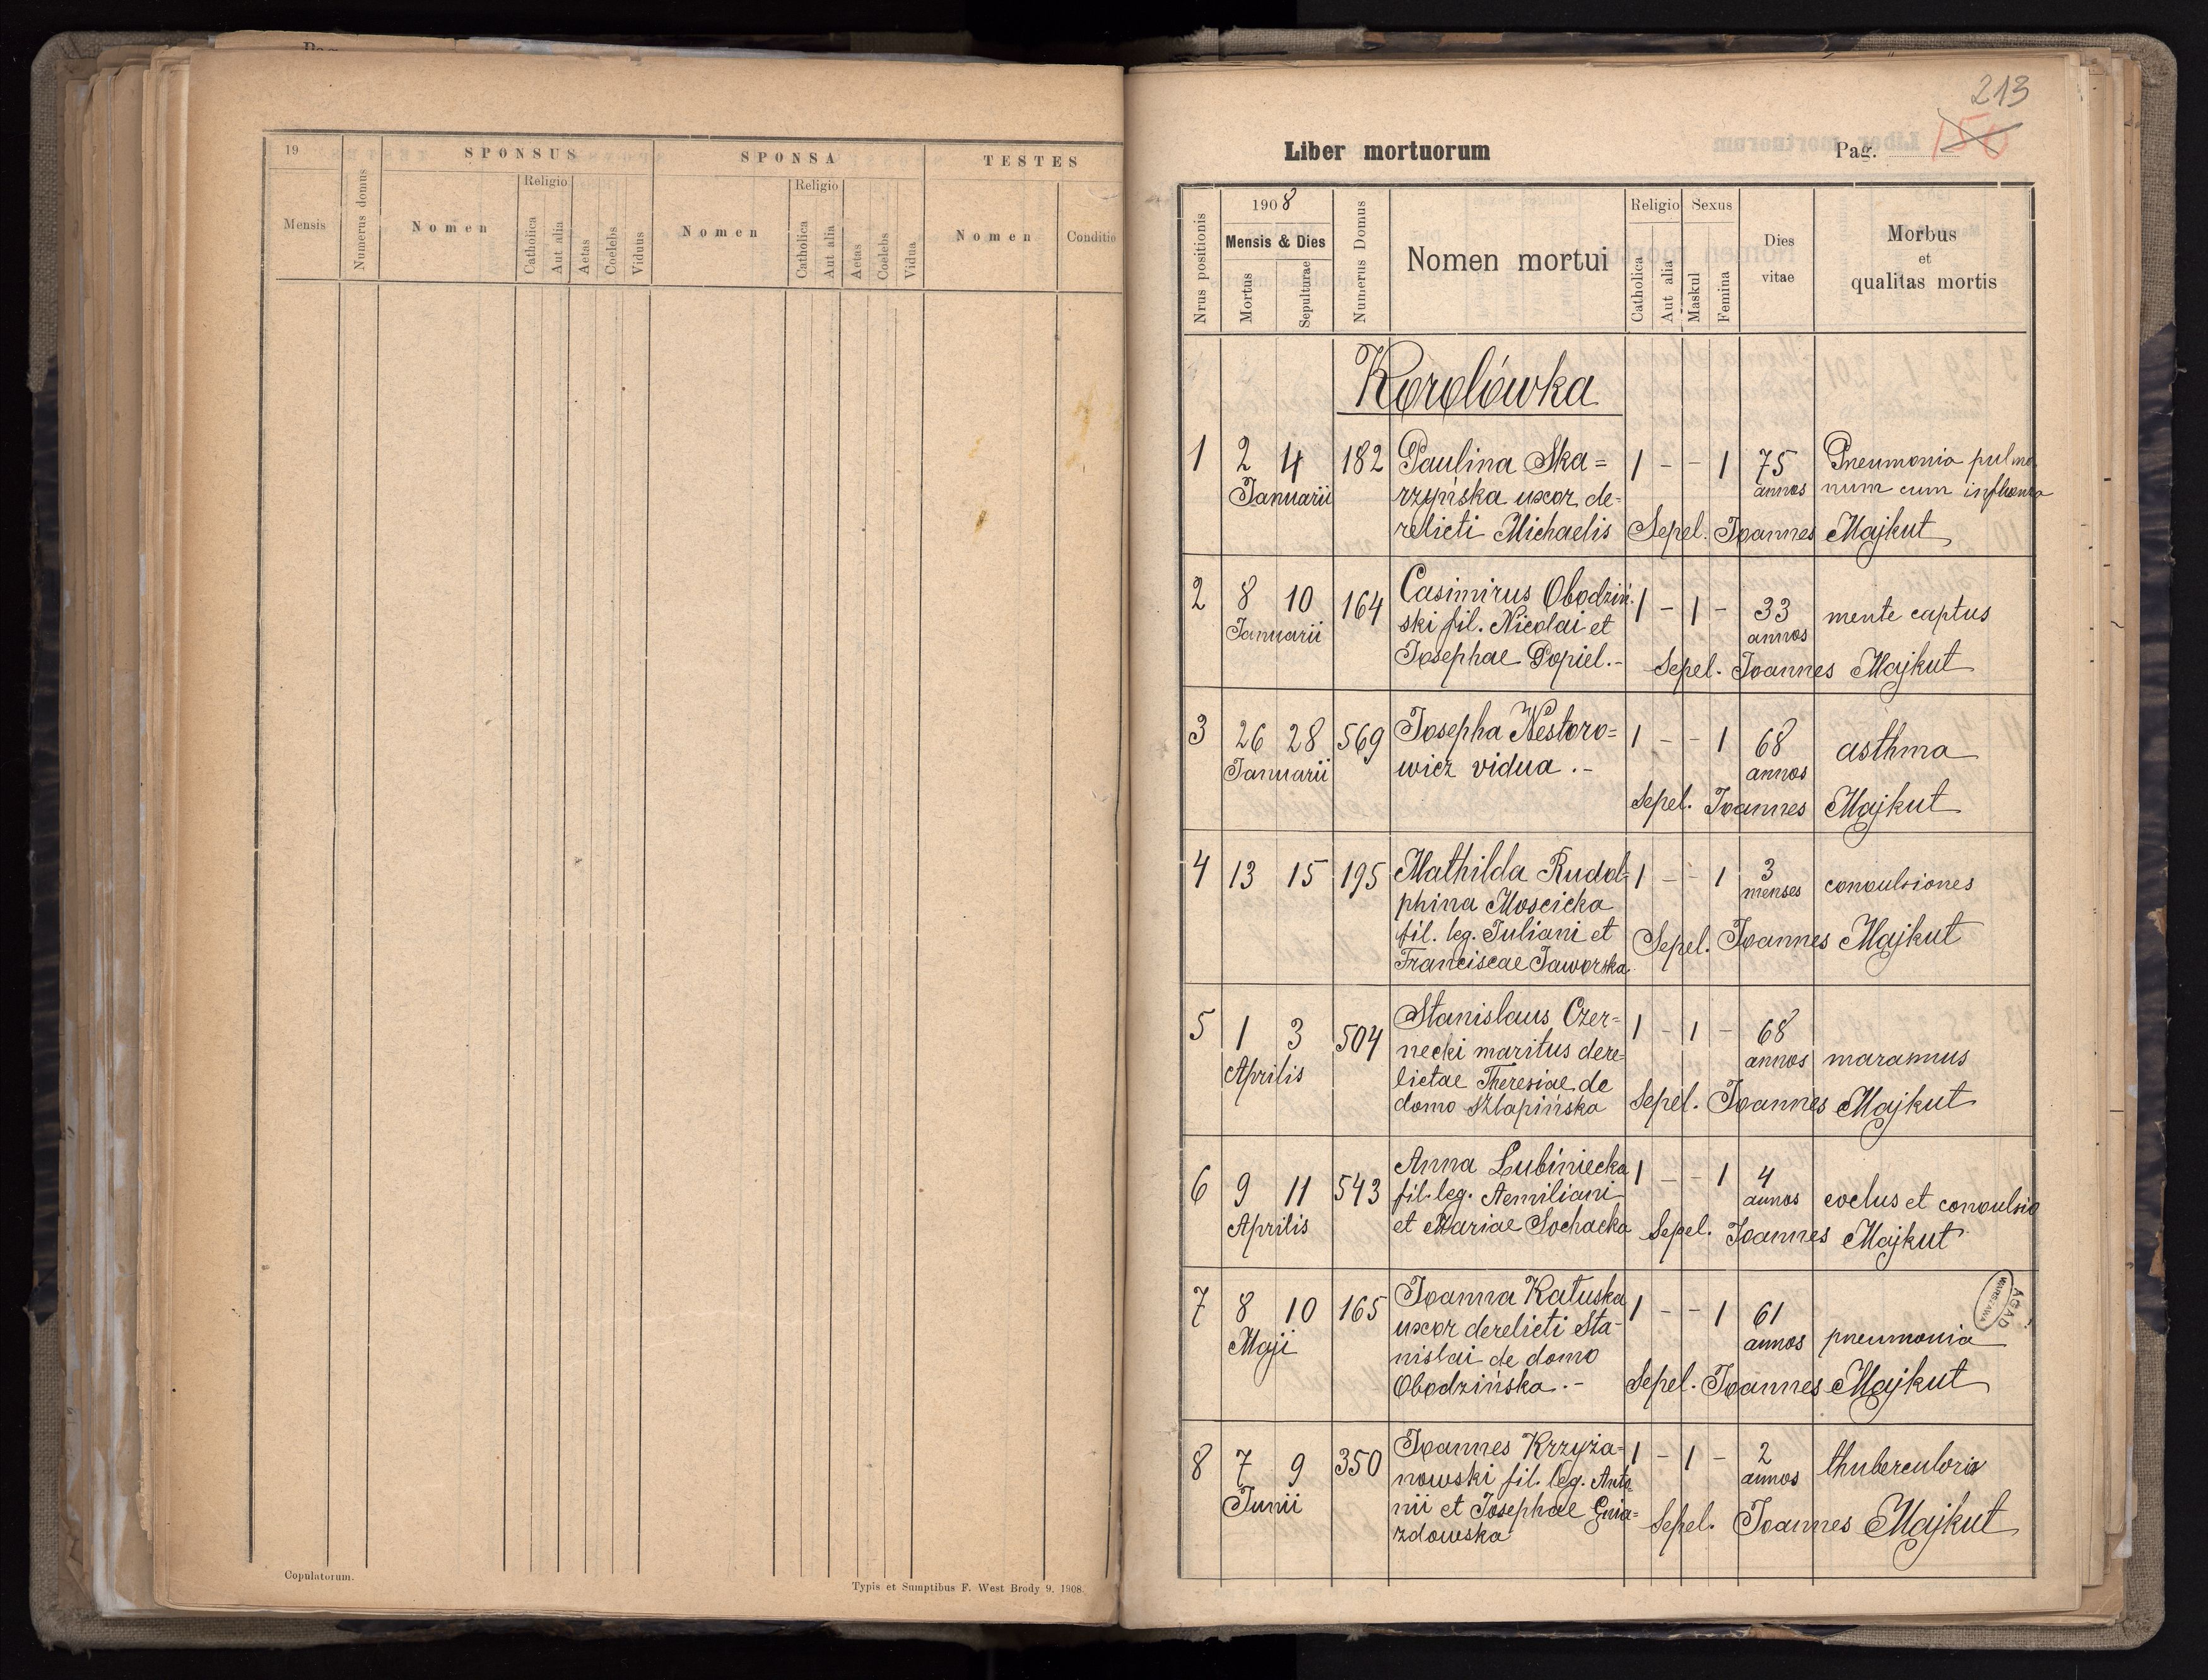 Pag.
19
SPONSUS
SPONSA
TESTES
Mensis
Numerus domus
Nomen
Religio
Catholica
Aut alia
Aetas
Coelebs
Viduus
Nomen
Religio
Catholica
Aut alia
Aetas
Coelebs
Vidua
Nomen
Conditio
Copulatorum.
Typis et Sumptibus F. West Brody 9. 1908.
213
Liber mortuorum
Pag. 150
Nrus positionis
1908
Mensis & Dies
Mortus
Sepulturae
Numerus Domus
Nomen mortui
Religio
Catholica
Aut alia
Sexus
Maskul
Femina
Dies
vitae
Morbus
et
qualitas mortis
Korolówka
1 2 4 182 Paulina Ska= 1 - - 1 75 Pneumonia pulmo
Januarii rzyńska uxor de- annos num cum influenza
relicti Michaelis Sepel. Joannes Majkut
2 8 10 164 Casimirus Obodziń- 1 - 1 - 33 mente captus
Januarii ski fil. Nicolai et annos
Josephae Popiel.- Sepel. Joannes Majkut
3 26 28 569 Josepha Nestoro= 1 - - 1 68 asthma
Januarii wicz vidua.- annos
Sepel. Joannes Majkut
4 13 15 195 Mathilda Rudol- 1 - - 1 3 convulsiones
phina Moscicka menses
fil. leg. Juliani et Sepel. Joannes Majkut
Franciscae Jaworska
5 1 3 504 Stanislaus Czer- 1 - 1 - 68
Aprilis necki maritus dere- annos marasmus
lictae Theresiae de
domo Szlapińska Sepel. Joannes Majkut
6 9 11 543 Anna Lubiniecka 1 - - 1 4
Aprilis fil. leg. Aemiliani annos et convulsio
et Mariae Sochacka Sepel. Joannes Majkut
7 8 10 165 Joanna Katuska 1 - - 1 61
Maji uxor derelicti Sta- annos pneumonia
nislai de domo
Obodzińska.- Sepel. Joannes Majkut
AGAD
WARSZAWA
8 7 9 350 Joannes Krzyża- 1 - 1 - 2 thuberculoris
Junii nowski fil. leg. Anto- annos
nii et Josephae Gnia- Sepel. Joannes Majkut
zdowska